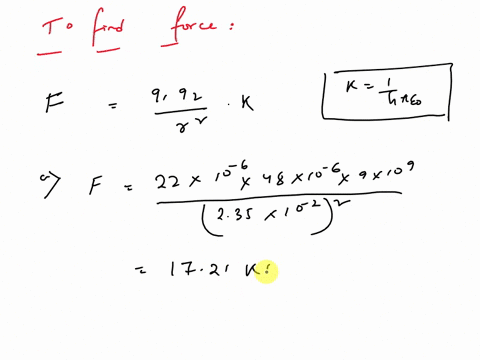 To find force:
F = q₁ q₂ / r² · K
K = 1 / 4πε₀
a) F = 22 × 10⁻⁶ × 48 × 10⁻⁶ × 9 × 10⁹ / (2.35 × 10⁻²)²
= 17.21 K